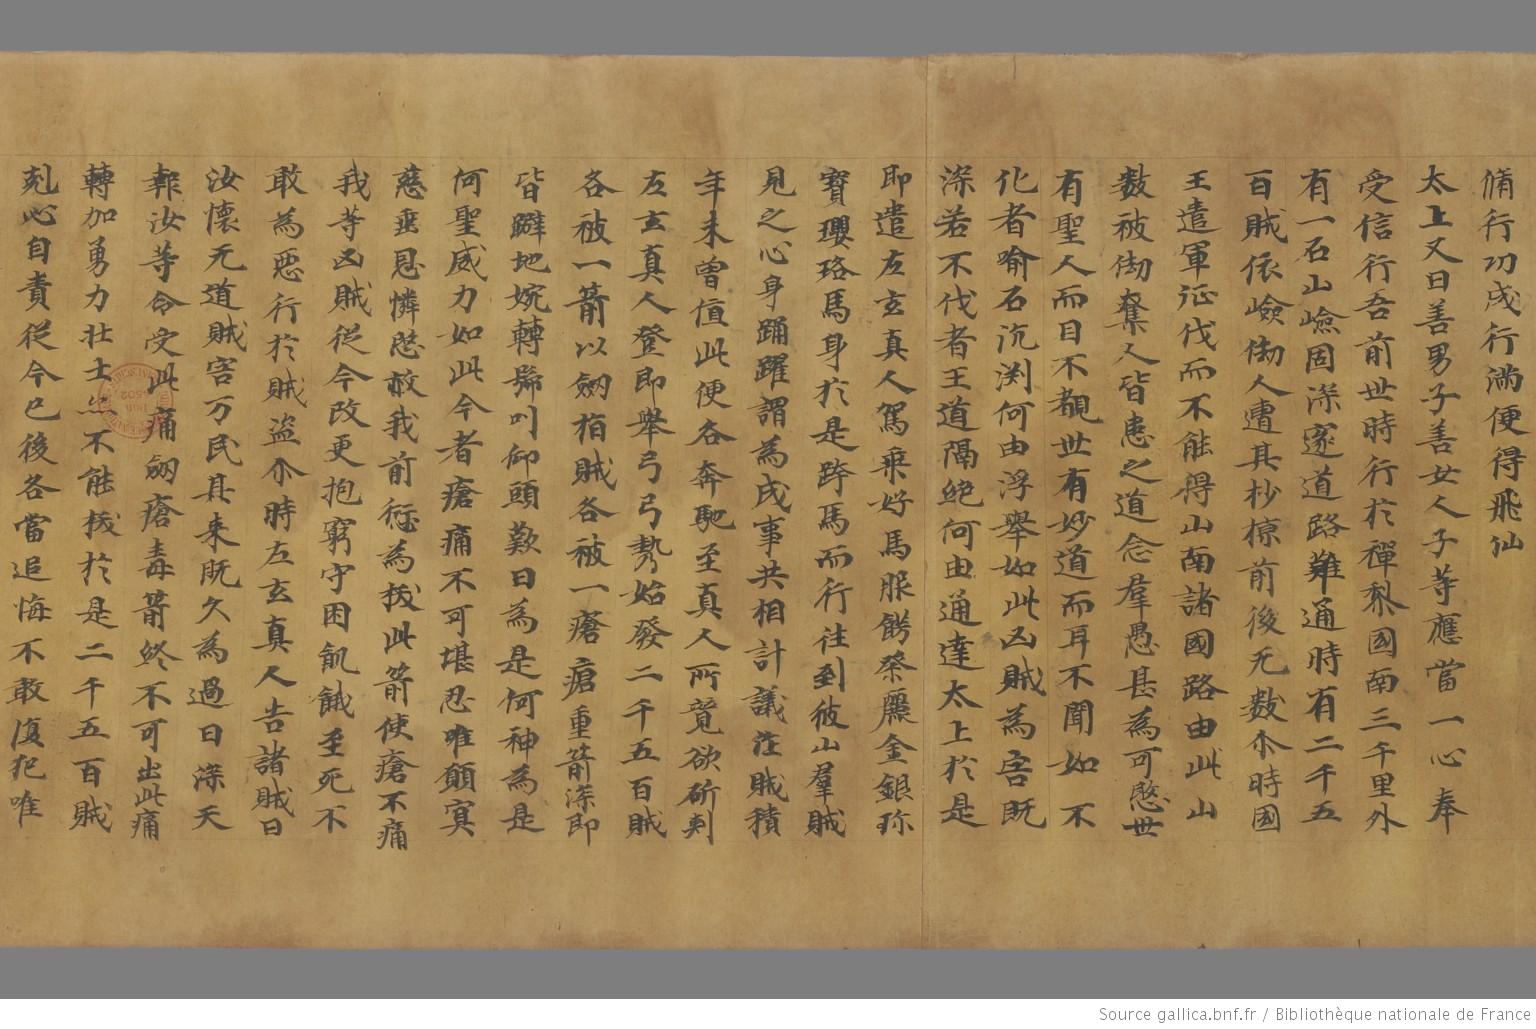 脩行功成行滿便得飛仙
太上又曰善男子善女人子等應當一心奉
受信行吾前世時行於禪䅲國南三千里外
有一石山嶮固深邃道路難通時有二千五
百賊依嶮刧人遭其抄掠前後无數尒時國
王遣軍征伐而不能得山南諸國路由此山
數被刧奪人皆患之道念羣愚甚為可愍世
有聖人而目不覩世有妙道而耳不聞如不
化者喻石沉渕何由浮舉如此凶賊為吾既
深若不伐者王道隔絶何由通達太上於是
即遣左玄真人駕乘好馬服餝粲麗金銀珎
寶瓔珞馬身於是跨馬而行往到彼山羣賊
見之心身踊躍謂為成事共相計議注賊積
年未曾值此便各奔馳至真人所覓欲斫刾
左玄真人登即舉弓弓勢始發二千五百賊
各被一箭以劒栺賊各被一瘡瘡重箭深即
皆躃地婉轉歸叫仰頭歎曰為是何神為是
何聖威力如此今者瘡痛不可堪忍唯願㝠
慈垂恩憐愍救我前愆為拔此箭使瘡不痛
我等凶賊從今改更抱窮守困飢餓至死不
敢為惡行於賊盜尒時左玄真人告諸賊曰
汝懷无道賊害万民其来既久為過日深天
報汝等令受此痛劒瘡毒箭終不可出此痛
轉加勇力壯士 不能拔於是二千五百賊
剋心自責從今已後各當追悔不敢復犯唯
Source gallica.bnf.fr / Bibliothèque nationale de France